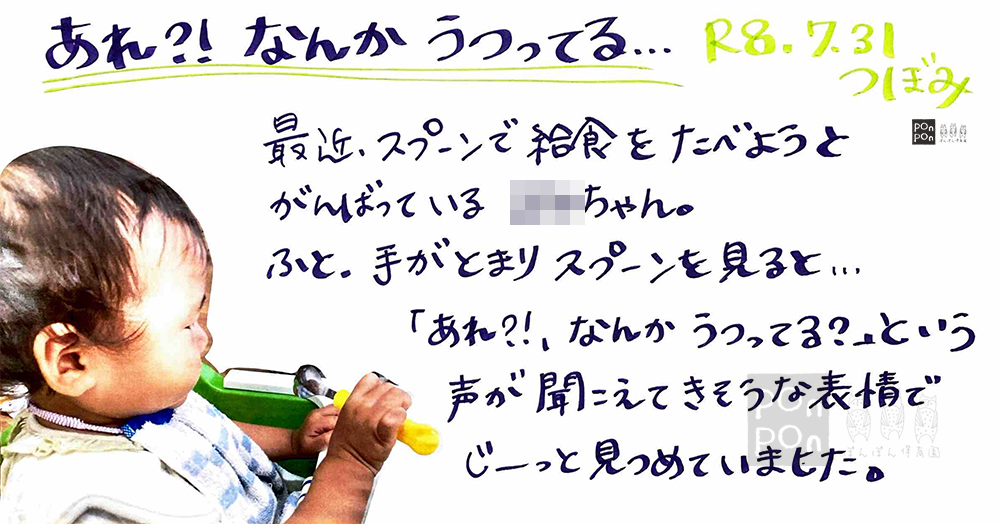 あれ?! なんか うつってる…
R8.7.31
つぼみ
pon
pon
最近、スプーンで 給食を たべようと
がんばっている ちゃん。
ふと、手がとまり スプーンを見ると…
「あれ?!、なんか うつってる?」という
声が 聞こえてきそうな表情で
じーっと見つめていました。
pon
pon
ぽんぽん保育園